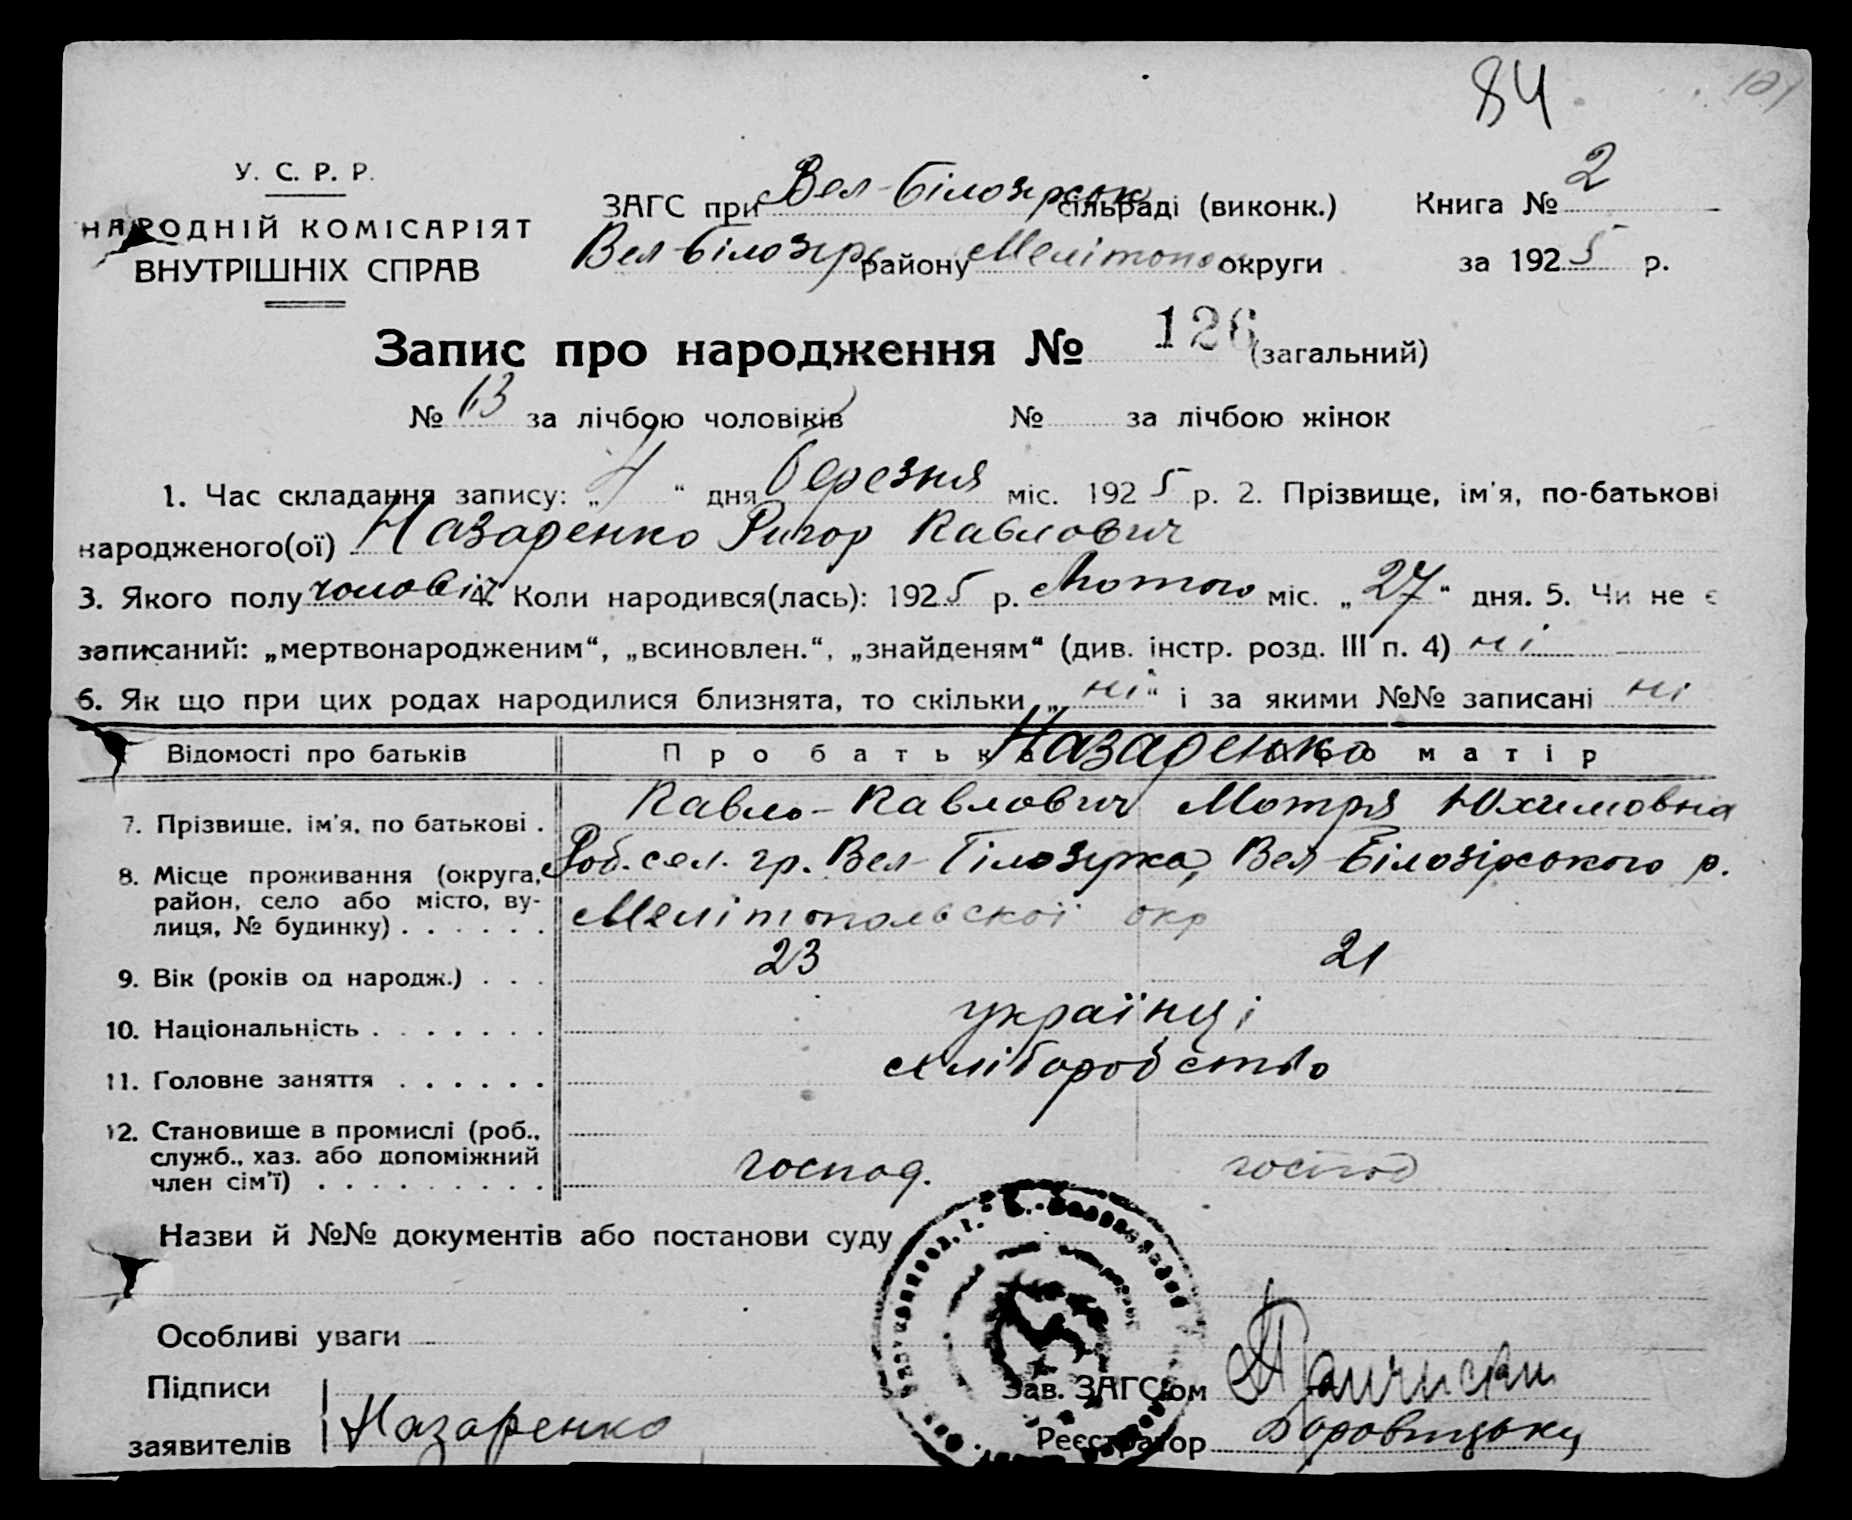 84
У. С. Р. Р.
НАРОДНІЙ КОМІСАРІЯТ
ВНУТРІШНІХ СПРАВ
ЗАГС при Вел-Білозірськ сільраді (виконк.)
Вел-Білозірс району Мелітопо округи
Книга № 2
за 1925 р.
Запис про народження № 126 (загальний)
№ 13 за лічбою чоловіків № за лічбою жінок
1. Час складання запису: „4“ дня березня міс. 1925 р. 2. Прізвище, ім'я, по-батькові
народженого(ої) Назаренко Ригор Павлович
3. Якого полу чоловіч 4. Коли народився(лась): 1925 р. Лютого міс. „27“ дня. 5. Чи не є
записаний: „мертвонародженим“, „всиновлен.“, „знайденям“ (див. інстр. розд. III п. 4) ні
6. Як що при цих родах народилися близнята, то скільки „ні“ і за якими №№ записані ні
Відомості про батьків Про батька Назаренко Про матір
7. Прізвище, ім'я, по батькові . Павло Павлович Мотря Юхимовна
8. Місце проживання (округа, Роб. сел. гр. Вел-Білозірка, Вел-Білозірського р.
район, село або місто, ву-
лиця, № будинку) . . . . . . Мелітопольскої окр
9. Вік (років од народж.) . . . 23 21
10. Національність . . . . . . . українці
11. Головне заняття . . . . . . хліборобство
12. Становище в промислі (роб.,
служб., хаз. або допоміжний
член сім'ї) . . . . . . . . . господ. господ
Назви й №№ документів або постанови суду
Особливі уваги
Підписи
заявителів Назаренко
Зав. ЗАГС'ом
Реєстратор